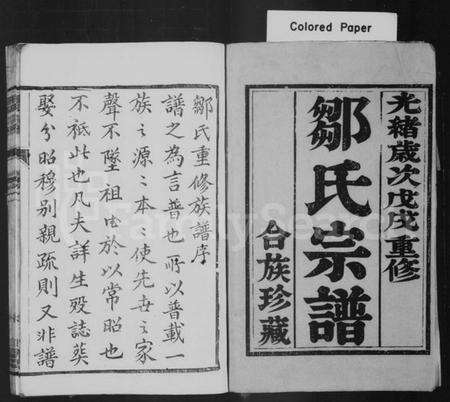 Colored Paper
光緒歲次戊戌重修
鄒氏宗譜
合族珍藏
鄒氏重修族譜序
譜之為言普也所以普載一
族之源之本之使先世之家
聲不墜祖由於以常昭也
不祇此也凡夫詳生殁誌葬
娶分昭穆別親疏則又非譜